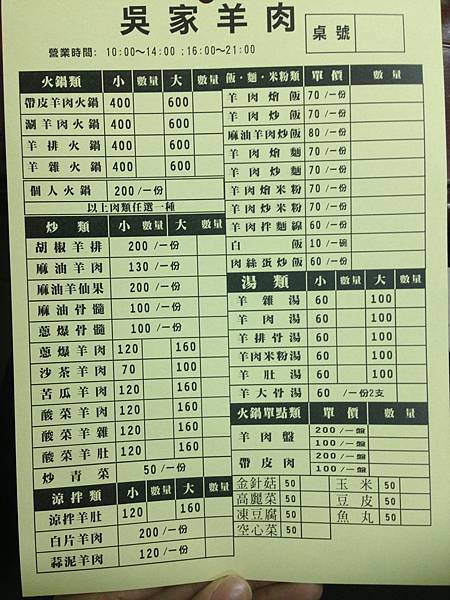 吳家羊肉
桌號
營業時間: 10:00～14:00 ;16:00～21:00
火鍋類 小 數量 大 數量
帶皮羊肉火鍋 400 600
涮羊肉火鍋 400 600
羊排火鍋 400 600
羊雜火鍋 400 600
個人火鍋 200/一份
以上肉類任選一種
炒類 小 數量 大 數量
胡椒羊排 200/一份
麻油羊肉 130/一份
麻油羊仙果 200/一份
麻油骨髓 100/一份
蔥爆骨髓 100/一份
蔥爆羊肉 120 160
沙茶羊肉 70 100
苦瓜羊肉 120 160
酸菜羊肉 120 160
酸菜羊雜 120 160
酸菜羊肚 120 160
炒青菜 50/一份
涼拌類 小 數量 大 數量
涼拌羊肚 120 160
白片羊肉 200/一份
蒜泥羊肉 120/一份
飯·麵·米粉類 單價 數量
羊肉燴飯 70/一份
羊肉炒飯 70/一份
麻油羊肉炒飯 80/一份
羊肉燴麵 70/一份
羊肉炒麵 70/一份
羊肉燴米粉 70/一份
羊肉炒米粉 70/一份
羊肉拌麵線 60/一份
白飯 10/一碗
肉絲蛋炒飯 60/一份
湯類 小 數量 大 數量
羊雜湯 60 100
羊肉湯 60 100
羊排骨湯 60 100
羊肉米粉湯 60 100
羊肚湯 60 100
羊大骨湯 60 /一份2支
火鍋單點類 單價 數量
羊肉盤 200/一盤
100/一盤
帶皮肉 200/一盤
100/一盤
金針菇 50 玉米 50
高麗菜 50 豆皮 50
凍豆腐 50 魚丸 50
空心菜 50